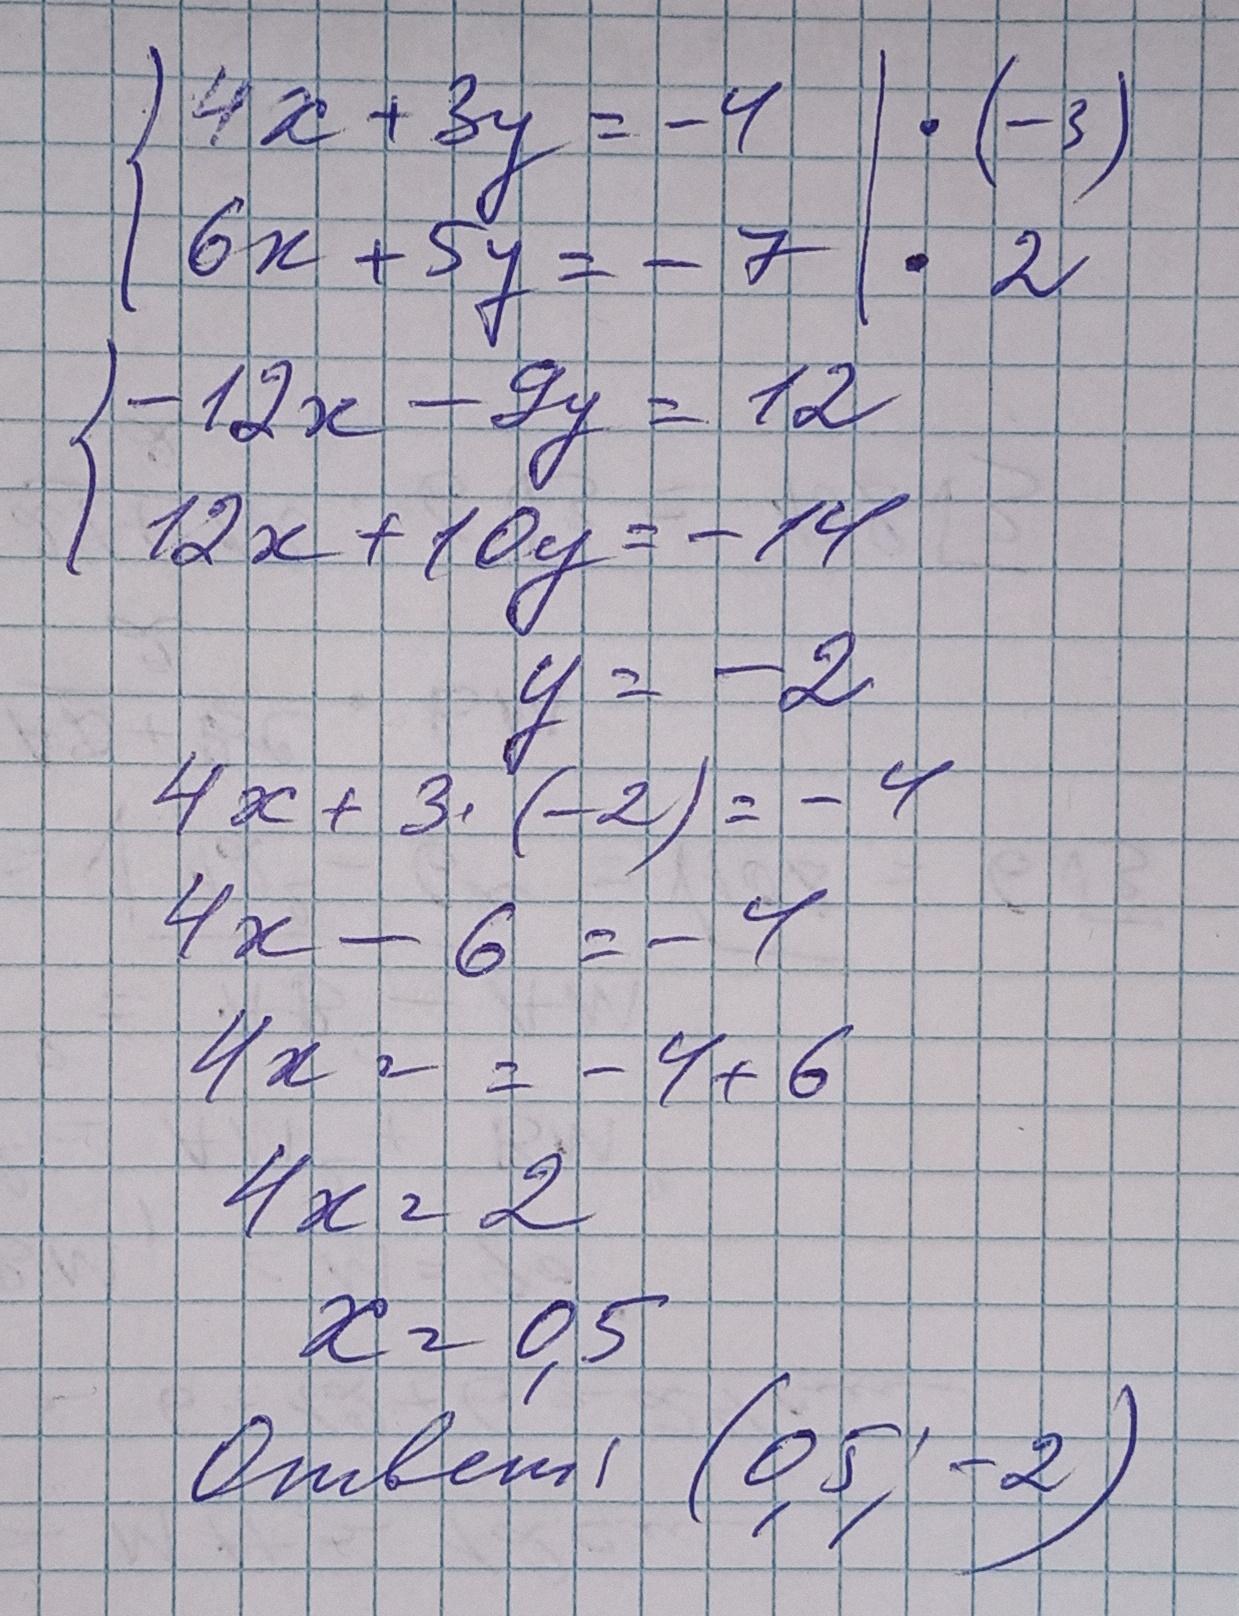 { 4x + 3y = -4 | · (-3)
6x + 5y = -7 | · 2
{ -12x - 9y = 12
12x + 10y = -14
y = -2
4x + 3 · (-2) = -4
4x - 6 = -4
4x = = -4 + 6
4x = 2
x = 0,5
Ответ: (0,5; -2)